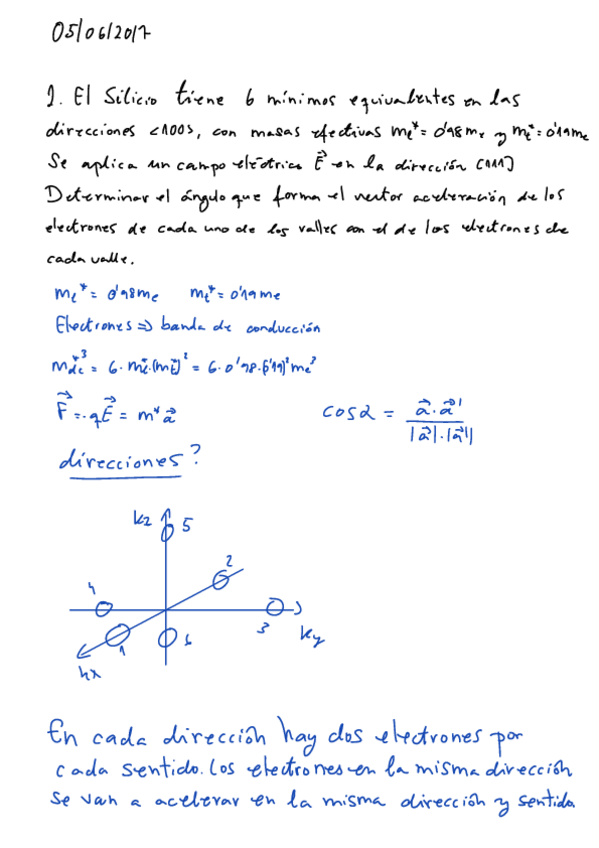 05/06/2017
1. El Silicio tiene 6 mínimos equivalentes en las
direcciones <100>, con masas efectivas me*= 0'98me y mt*= 0'19me
Se aplica un campo eléctrico E⃗ en la dirección [111]
Determinar el ángulo que forma el vector aceleración de los
electrones de cada uno de los valles con el de los electrones de
cada valle.
me*= 0'98me mt*= 0'19me
Electrones => banda de conducción
= 6 · 0'98 · (0'19)² me³
F⃗ = -qE⃗ = m* a⃗
cos α = a⃗ · a⃗' / |a⃗| · |a⃗'|
direcciones?
kz 5
2
4
3 ky
1 6
kx
En cada dirección hay dos electrones por
cada sentido. Los electrones en la misma dirección
se van a acelerar en la misma dirección y sentido.